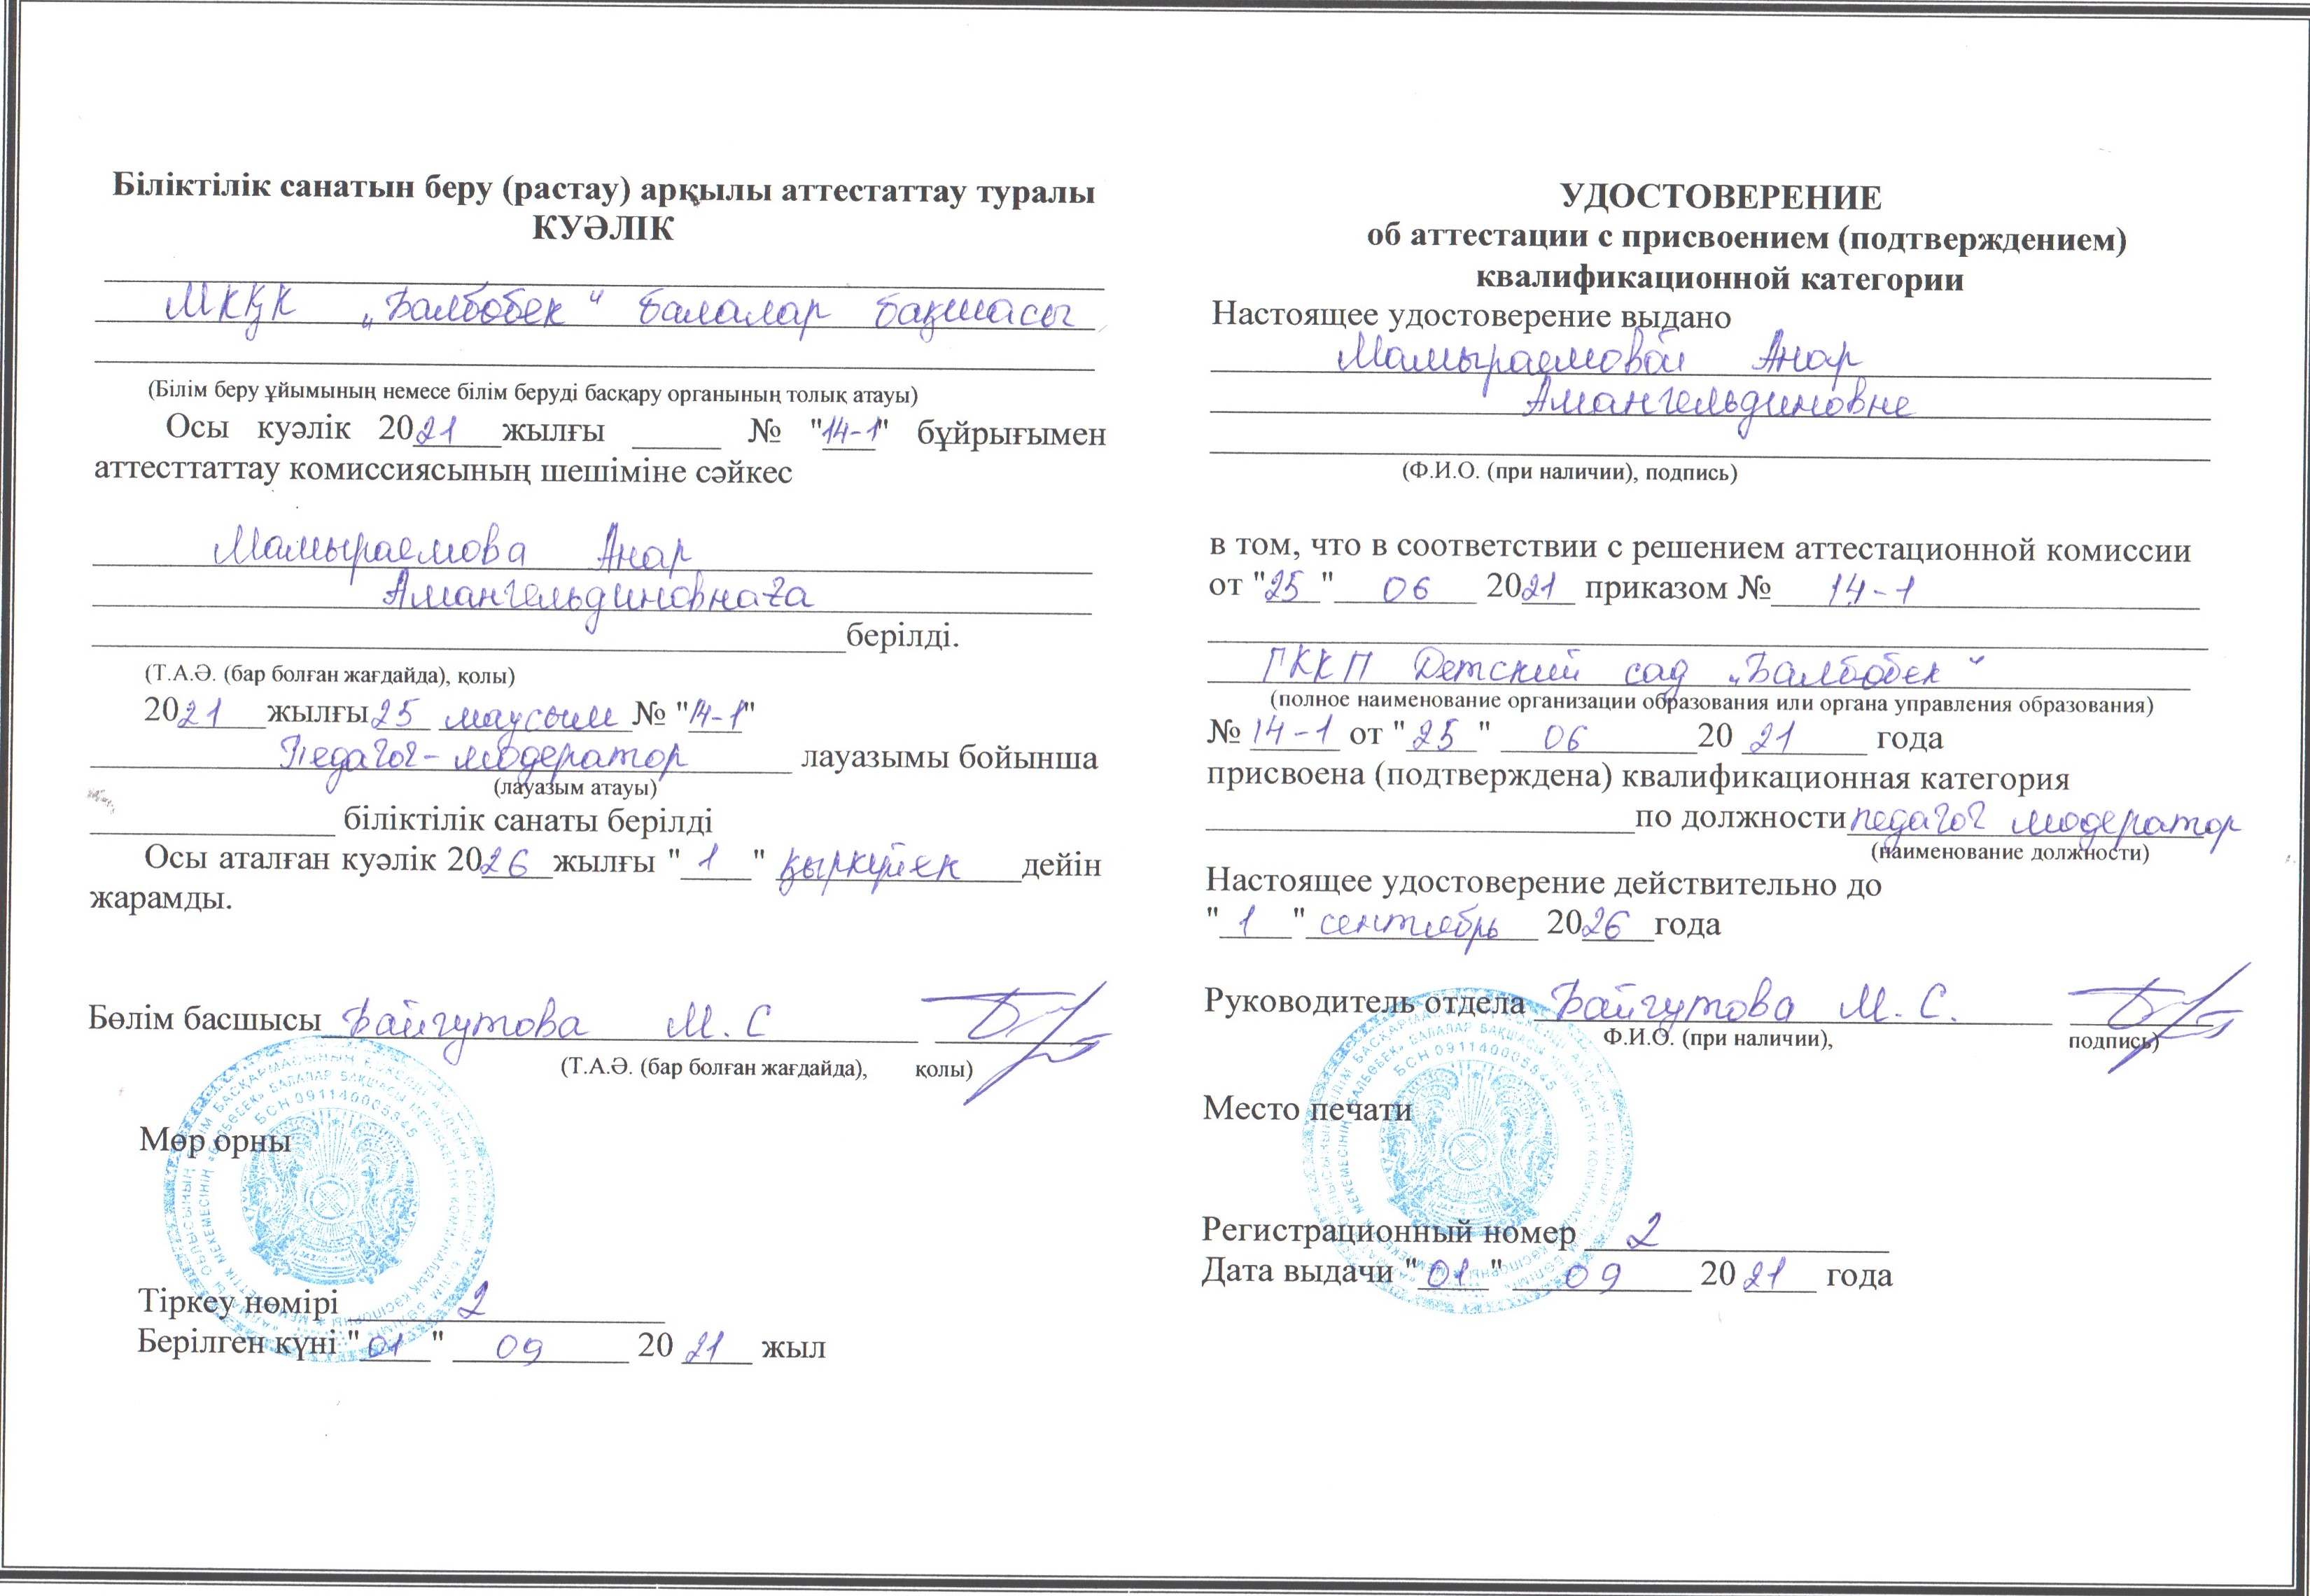 Біліктілік санатын беру (растау) арқылы аттестаттау туралы
КУӘЛІК
МКҚК „Балбөбек“ балалар бақшасы
(Білім беру ұйымының немесе білім беруді басқару органының толық атауы)
Осы куәлік 2021 жылғы ______ № "14-1" бұйрығымен
аттесттаттау комиссиясының шешіміне сәйкес
Мамыраемова Анар
Амангельдиновнаға
берілді.
(Т.А.Ә. (бар болған жағдайда), қолы)
2021 жылғы 25 маусым № "14-1"
Педагог-модератор лауазымы бойынша
(лауазым атауы)
______________ біліктілік санаты берілді
Осы аталған куәлік 2026 жылғы "1" қыркүйек дейін
жарамды.
Бөлім басшысы Байгутова М.С
(Т.А.Ә. (бар болған жағдайда), қолы)
Мөр орны
БСН 091140005845
Тіркеу нөмірі 2
Берілген күні "01" 09 2021 жыл
УДОСТОВЕРЕНИЕ
об аттестации с присвоением (подтверждением)
квалификационной категории
Настоящее удостоверение выдано
Мамыраемовой Анар
Амангельдиновне
(Ф.И.О. (при наличии), подпись)
в том, что в соответствии с решением аттестационной комиссии
от "25" 06 2021 приказом № 14-1
ГККП Детский сад „Балбөбек“
(полное наименование организации образования или органа управления образования)
№ 14-1 от "25" 06 2021 года
присвоена (подтверждена) квалификационная категория
по должности педагог модератор
(наименование должности)
Настоящее удостоверение действительно до
"1" сентябрь 2026 года
Руководитель отдела Байгутова М.С.
Ф.И.О. (при наличии), подпись)
Место печати
БСН 091140005845
Регистрационный номер 2
Дата выдачи "01" 09 2021 года